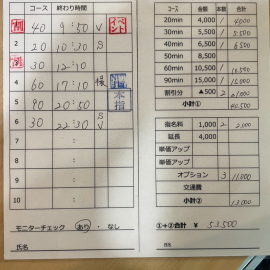 コース 終わり時間
割 40 9:50 V イベント
2 20 10:30 S V
30 12:10
4 60 17:10
5 90 20:50 本指
6 30 22:30 S V
7
8
9
10
モニターチェック あり ・ なし
氏名
コース 金額 本数 合計
20min 4,000 1 4000
30min 5,500 1 5500
40min 6,500 1 6500
50min
60min 10,500 1 10,500
90min 15,000 1
割引分 ▲500
小計①
指名料 1,000 2 2,000
延長 4,000
単価アップ
単価アップ
オプション 3 11,000
交通費
小計② 13,000
①+②合計 ¥ 53,500
氏名